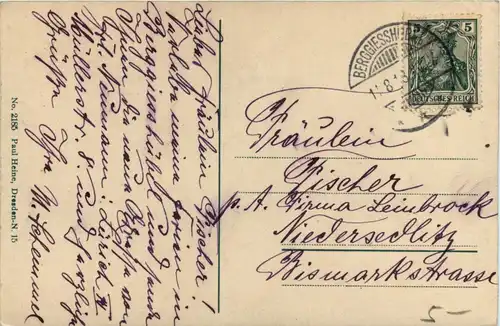 Liebes Fräulein Fischer!
Verlebe meine Ferien in
Berggiesshübel und
Ihnen die neue Adresse von
Frl. Naumann: Zürich
Müllerstr. 8. und herzliche
Grüsse Ihre M.
No. 2185 Paul Heine, Dresden-N. 15
BERGGIESSHÜBEL
5
DEUTSCHES REICH
Fräulein
Fischer
p. A. Firma Leimbrock
Niedersedlitz
Bismarkstrasse
5-